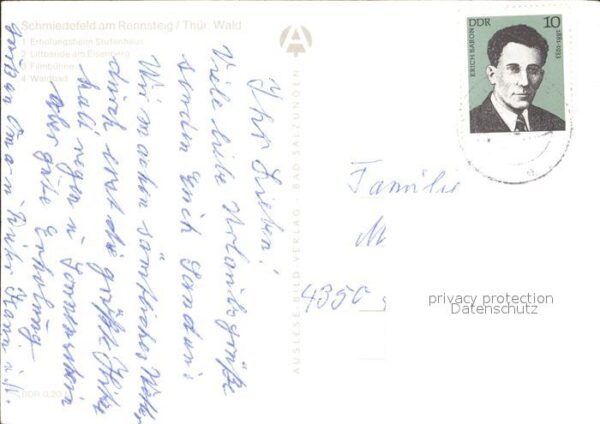 Schmiedefeld am Rennsteig / Thür. Wald
1 Erholungsheim Stutenhaus
2 Liftbaude am Eisenberg
3 Filmbühne
4 Waldbad
Ihr Lieben!
Viele liebe Urlaubsgrüße
senden Euch
Wir machen sämtliches Wetter
durch erst die größte Hitze
kalt regen u Sonnenschein
aber gute Erholung
DDR 0,20
AUSLESE-BILD-VERLAG · BAD SALZUNGEN
DDR 10
ERICH BARON 1881-1933
Familie
M
4350
privacy protection
Datenschutz